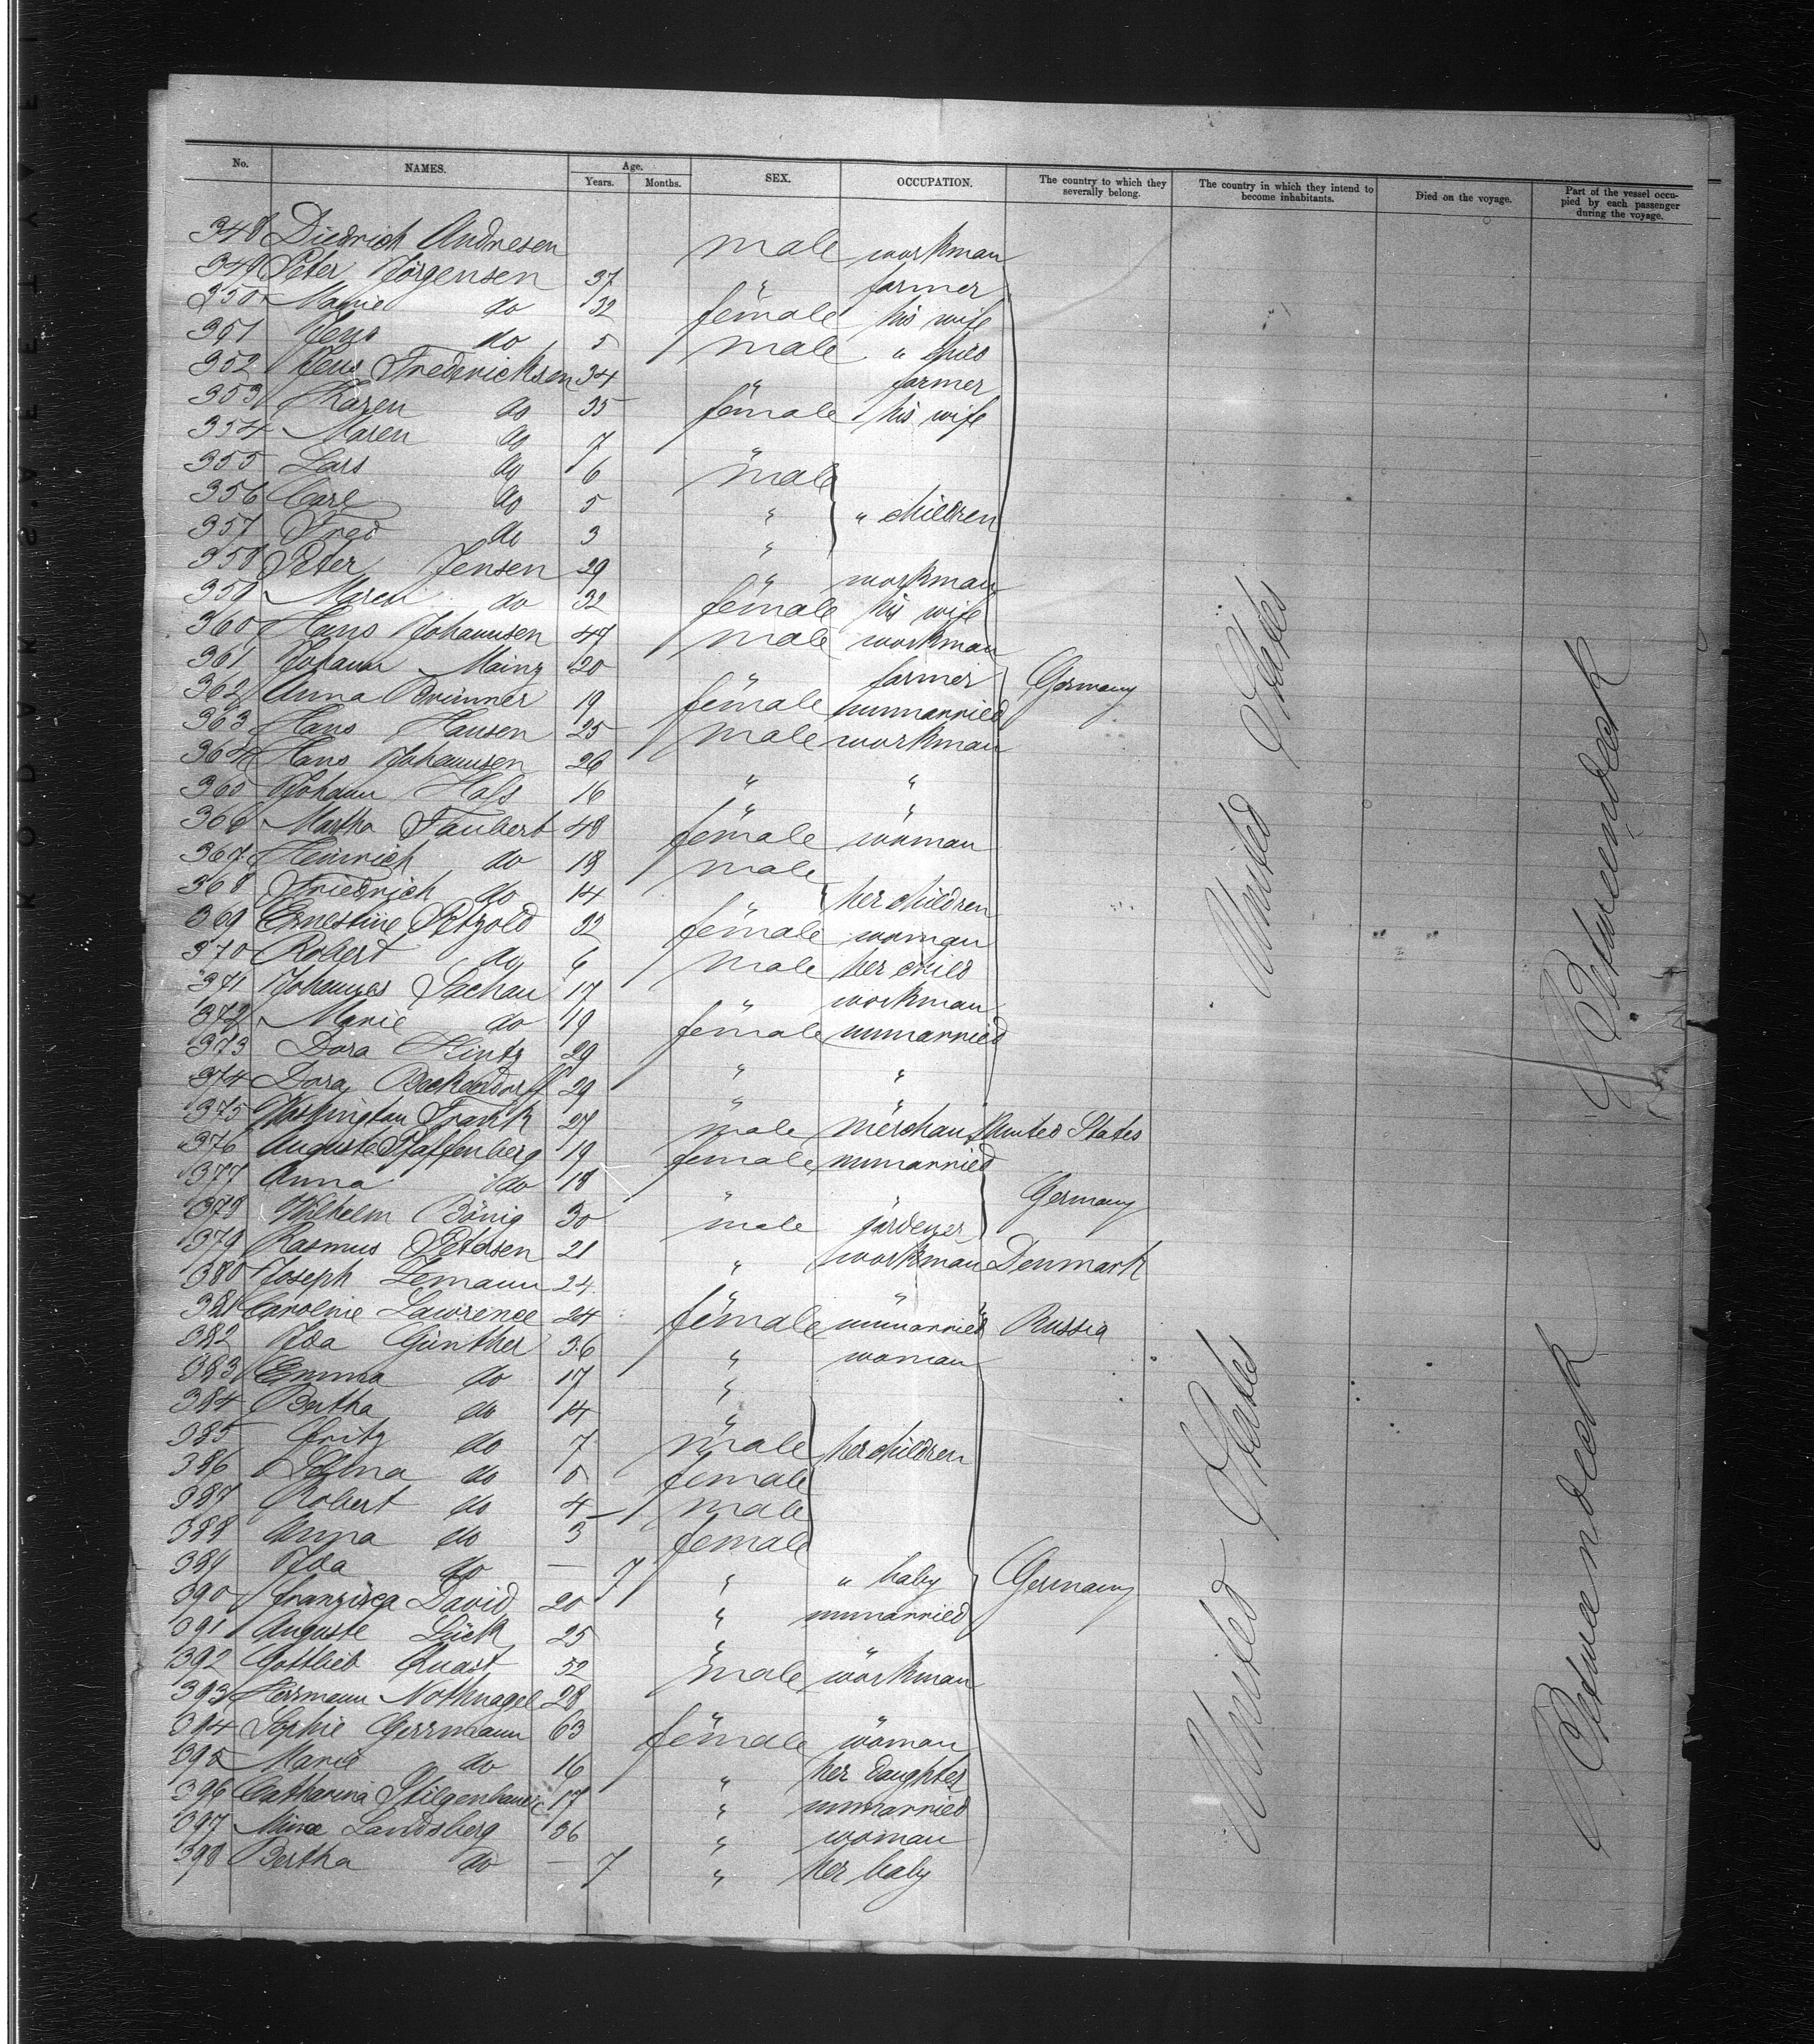 No. NAMES. Age. Years. Months. SEX. OCCUPATION. The country to which they severally belong. The country in which they intend to become inhabitants. Died on the voyage. Part of the vessel occupied by each passenger during the voyage.
348 Diedrich Andresen male workman
349 Peter Jörgensen 37 " farmer
350 Marie do 32 female his wife
351 Jens do 5 male " child
352 Jens Fredericksen 34 " farmer
353 Karen do 35 female his wife
354 Maren do 7 "
355 Lars do 6 male
356 Carl do 5 " " children
357 Fred do 3 "
358 Peter Jensen 29 " workman
359 Maren do 32 female his wife
360 Hans Johannsen 47 male workman
361 Johann Mainz 20 " farmer Germany
362 Anna Brunner 19 female unmarried
363 Hans Hansen 25 male workman
364 Hans Johannsen 26 " "
365 Johann Hass 16 " "
366 Martha Taubert 48 female woman
367 Heinrich do 18 male
368 Friedrich do 14 " her children
369 Ernestine Petzold 32 female woman
370 Robert do 6 male her child
371 Johannes Sachau 17 " workman
372 Marie do 19 female unmarried
373 Dora Hintz 29 " "
374 Dora Backendorff 29 " "
375 Washington Frank 27 male merchant United States
376 Auguste Pfaffenberg 19 female unmarried
377 Anna do 18 " Germany
378 Wilhelm Bönig 30 male gardener
379 Rasmus Petersen 21 " workman Denmark
380 Joseph Lemann 24 " "
381 Caroline Lawrence 24 female unmarried Russia
382 Ida Günther 36 " woman
383 Emma do 17 "
384 Bertha do 14 "
385 Fritz do 7 male her children
386 Selma do 5 female
387 Robert do 4 male
388 Anna do 3 female
389 Ida do — 7 " " baby Germany
390 Franzisca David 20 " unmarried
391 Auguste Lück 25 " "
392 Gottlieb Quast 52 male workman
393 Herrmann Nothnagel 28 " "
394 Sophie Germann 63 female woman
395 Marie do 16 " her daughter
396 Catharina 17 " unmarried
397 Mina Landsberg 36 " woman
398 Bertha do — 7 " her baby
United States
United States
Betweendeck
Betweendeck